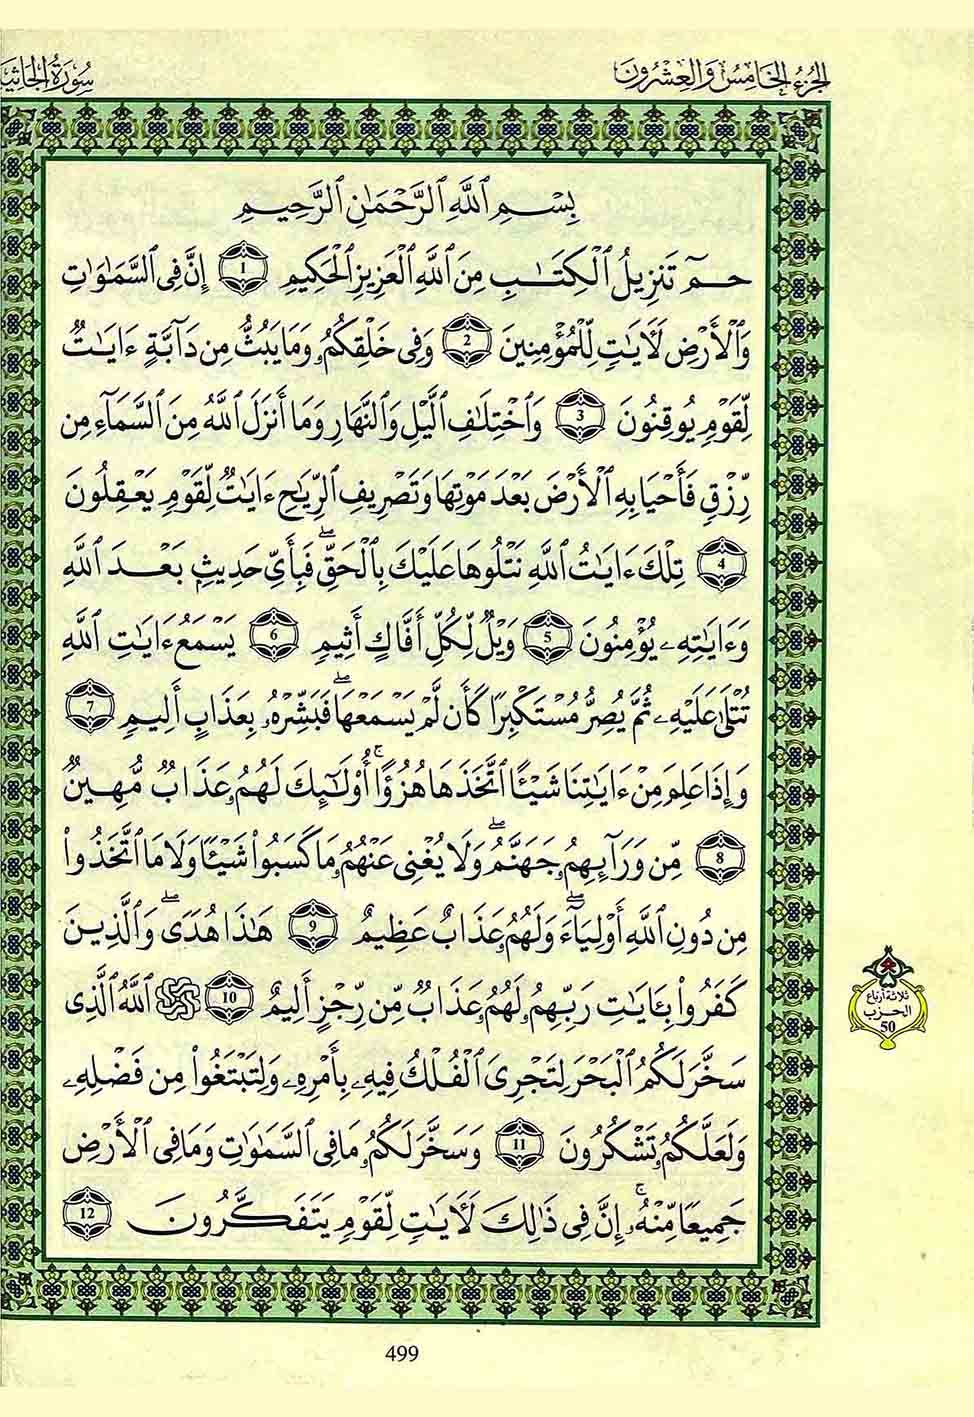 الجزء الخامس والعشرون
سورة الجاثي
بِسْمِ ٱللَّهِ ٱلرَّحْمَٰنِ ٱلرَّحِيمِ
حمٓ تَنزِيلُ ٱلْكِتَٰبِ مِنَ ٱللَّهِ ٱلْعَزِيزِ ٱلْحَكِيمِ 1 إِنَّ فِى ٱلسَّمَٰوَٰتِ
وَٱلْأَرْضِ لَءَايَٰتٍ لِّلْمُؤْمِنِينَ 2 وَفِى خَلْقِكُمُۥ وَمَا يَبُثُّ مِن دَآبَّةٍ ءَايَٰتٌ
لِّقَوْمٍ يُوقِنُونَ 3 وَٱخْتِلَٰفِ ٱلَّيْلِ وَٱلنَّهَارِ وَمَا أَنزَلَ ٱللَّهُ مِنَ ٱلسَّمَآءِ مِن
رِّزْقٍ فَأَحْيَا بِهِ ٱلْأَرْضَ بَعْدَ مَوْتِهَا وَتَصْرِيفِ ٱلرِّيَٰحِ ءَايَٰتٌ لِّقَوْمٍ يَعْقِلُونَ
4 تِلْكَ ءَايَٰتُ ٱللَّهِ نَتْلُوهَا عَلَيْكَ بِٱلْحَقِّۖ فَبِأَىِّ حَدِيثٍ بَعْدَ ٱللَّهِ
وَءَايَٰتِهِۦ يُؤْمِنُونَ 5 وَيْلٌ لِّكُلِّ أَفَّاكٍ أَثِيمٍ 6 يَسْمَعُ ءَايَٰتِ ٱللَّهِ
تُتْلَىٰ عَلَيْهِۦ ثُمَّ يُصِرُّ مُسْتَكْبِرًا كَأَن لَّمْ يَسْمَعْهَاۖ فَبَشِّرْهُۥ بِعَذَابٍ أَلِيمٍ 7
وَإِذَا عَلِمَ مِنْ ءَايَٰتِنَا شَيْـًٔا ٱتَّخَذَهَا هُزُؤًاۚ أُوْلَٰٓئِكَ لَهُمُۥ عَذَابٌ مُّهِينٌ
8 مِّن وَرَآئِهِمُۥ جَهَنَّمُۖ وَلَا يُغْنِى عَنْهُمُۥ مَا كَسَبُواْ شَيْـًٔا وَلَا مَا ٱتَّخَذُواْ
مِن دُونِ ٱللَّهِ أَوْلِيَآءَۖ وَلَهُمُۥ عَذَابٌ عَظِيمٌ 9 هَٰذَا هُدًىۖ وَٱلَّذِينَ
كَفَرُواْ بِـَٔايَٰتِ رَبِّهِمُۥ لَهُمُۥ عَذَابٌ مِّن رِّجْزٍ أَلِيمٍ 10 ٱللَّهُ ٱلَّذِى
سَخَّرَ لَكُمُ ٱلْبَحْرَ لِتَجْرِىَ ٱلْفُلْكُ فِيهِۦ بِأَمْرِهِۦ وَلِتَبْتَغُواْ مِن فَضْلِهِۦ
وَلَعَلَّكُمُۥ تَشْكُرُونَ 11 وَسَخَّرَ لَكُمُۥ مَا فِى ٱلسَّمَٰوَٰتِ وَمَا فِى ٱلْأَرْضِ
جَمِيعًا مِّنْهُۥۚ إِنَّ فِى ذَٰلِكَ لَءَايَٰتٍ لِّقَوْمٍ يَتَفَكَّرُونَ 12
ثلاثة أرباع
الحزب
50
499